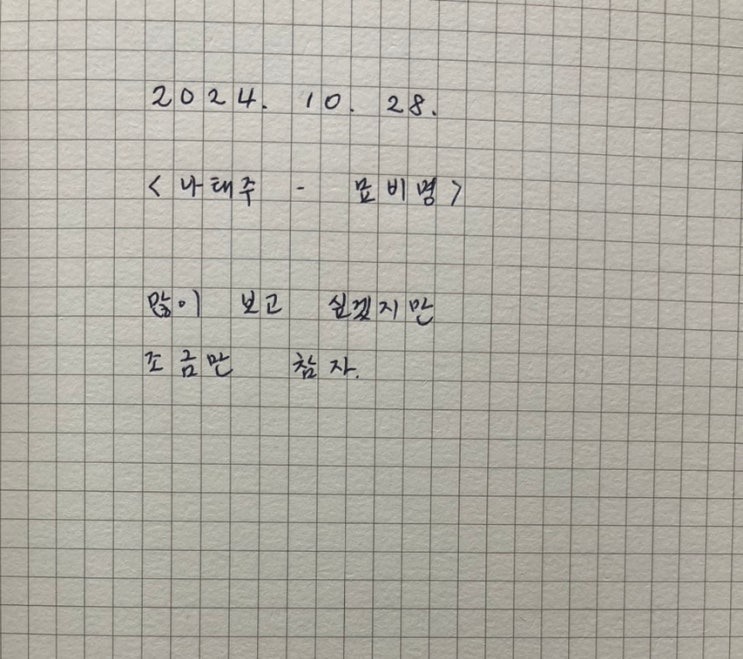 2024. 10. 28.
< 나태주 - 묘비명 >
많이 보고 싶겠지만
조금만 참자.